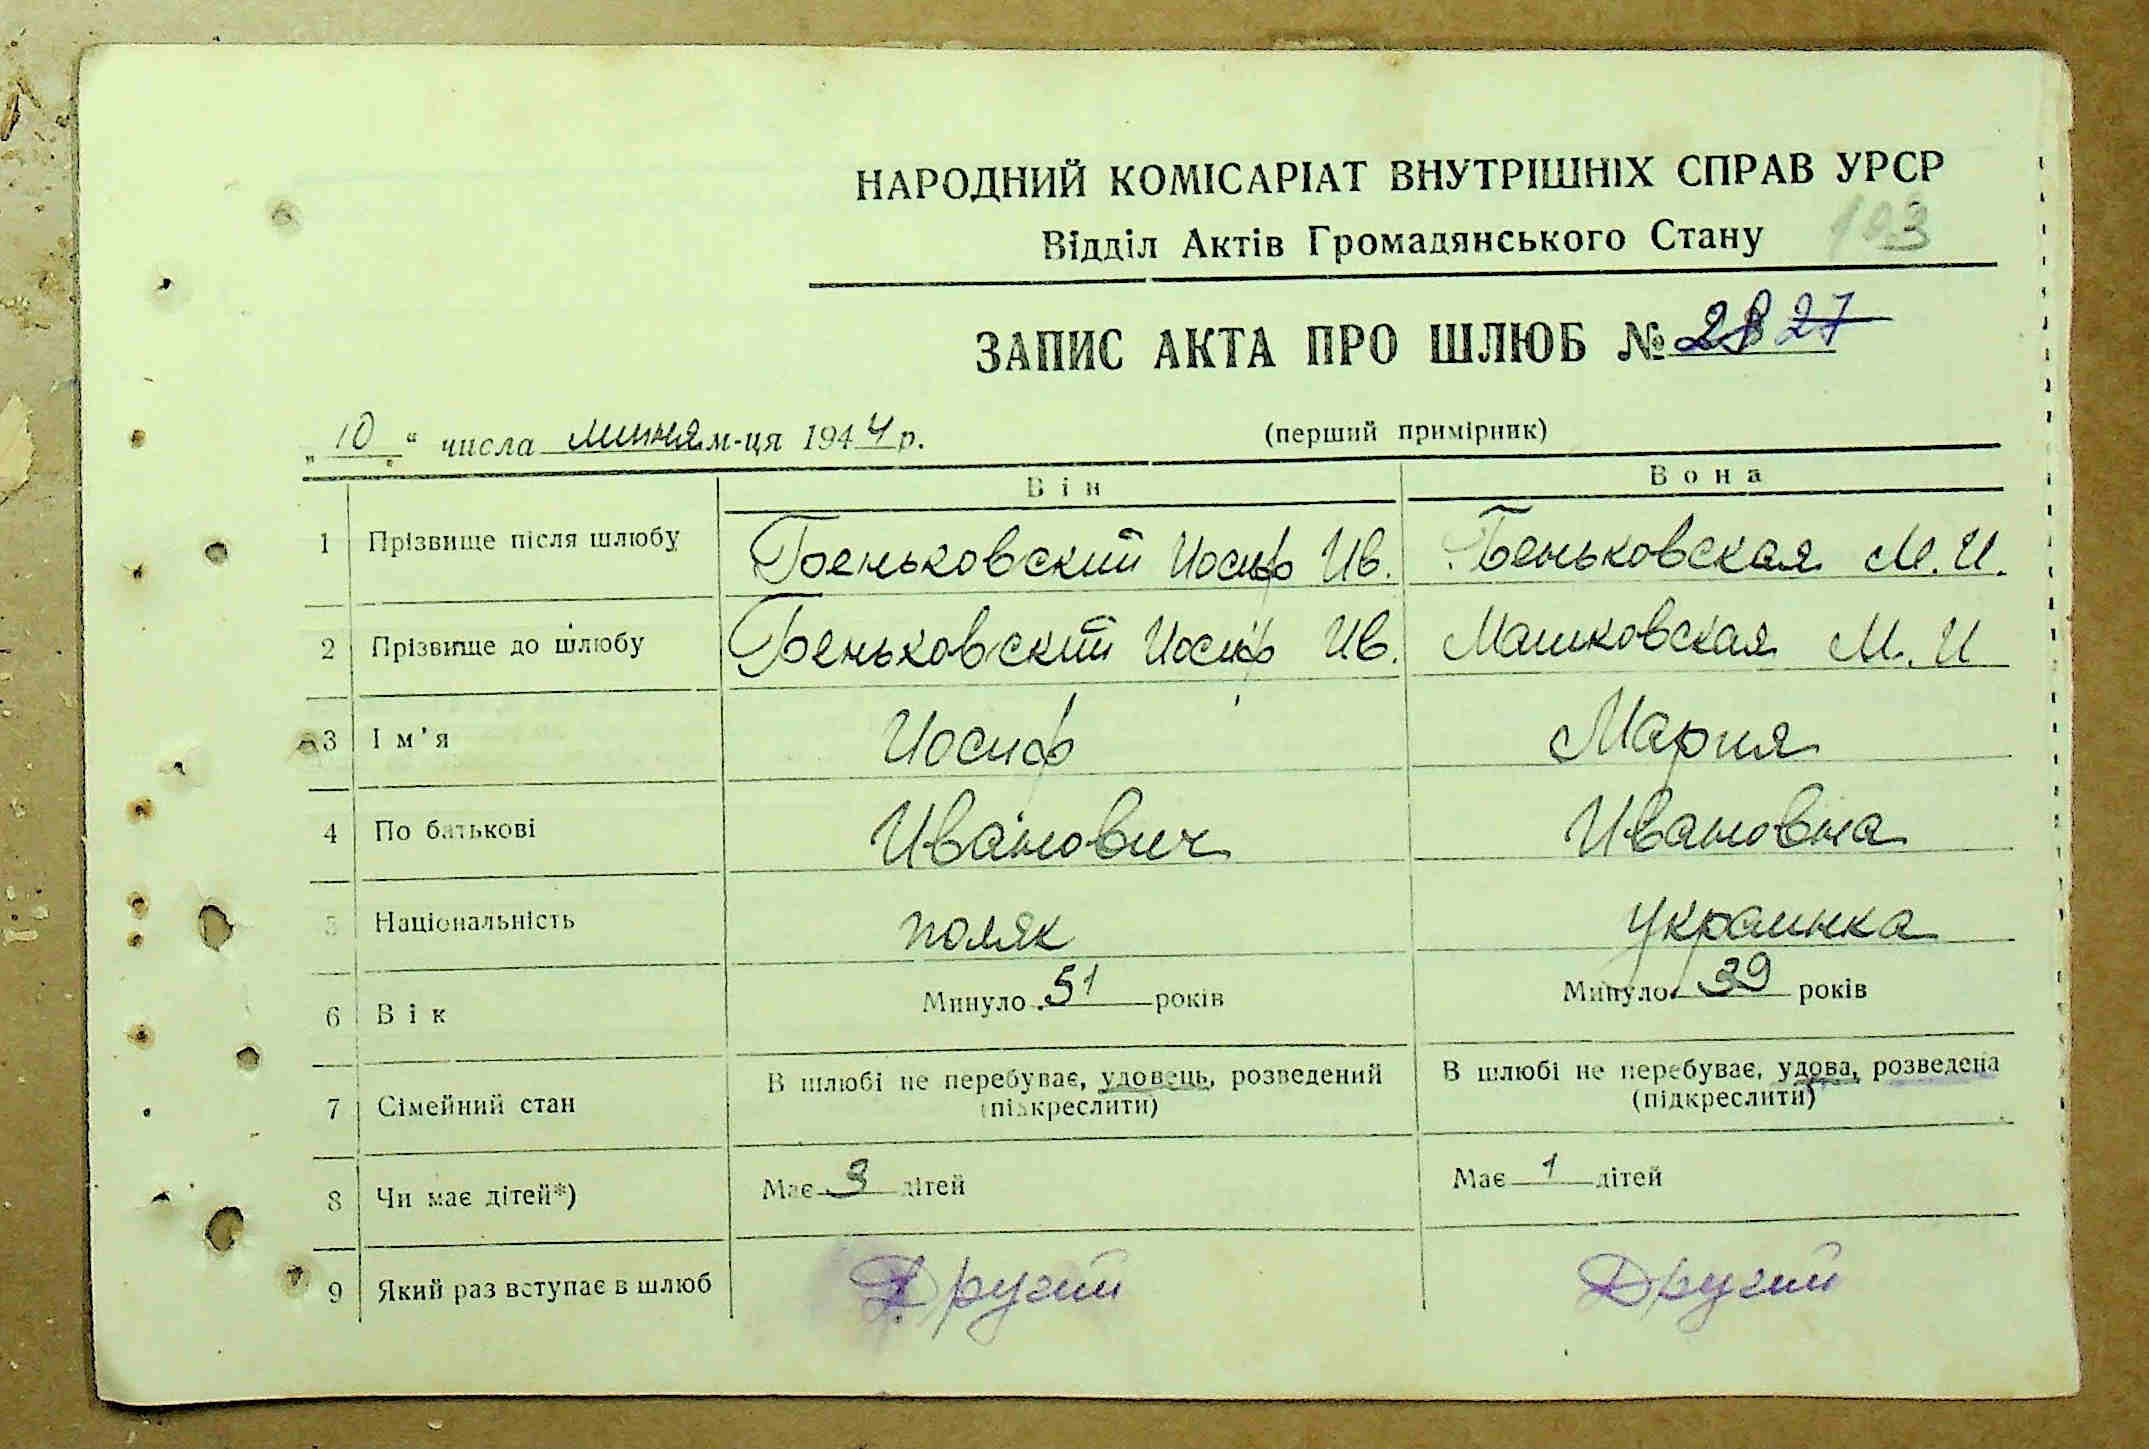 НАРОДНИЙ КОМІСАРІАТ ВНУТРІШНІХ СПРАВ УРСР
Відділ Актів Громадянського Стану 103
ЗАПИС АКТА ПРО ШЛЮБ № 28 27
„10“ числа липня м-ця 1944 р. (перший примірник)
Він Вона
1 Прізвище після шлюбу Беньковский Иосиф Ив. Беньковская М. И.
2 Прізвище до шлюбу Беньковский Иосиф Ив. Машковская М. И
3 Ім'я Иосиф Мария
4 По батькові Иванович Ивановна
5 Національність поляк украинка
6 Вік Минуло 51 років Минуло 39 років
7 Сімейний стан В шлюбі не перебуває, удовець, розведений В шлюбі не перебуває, удова, розведена
(підкреслити) (підкреслити)
8 Чи має дітей*) Має 3 дітей Має 1 дітей
9 Який раз вступає в шлюб Другий Другий